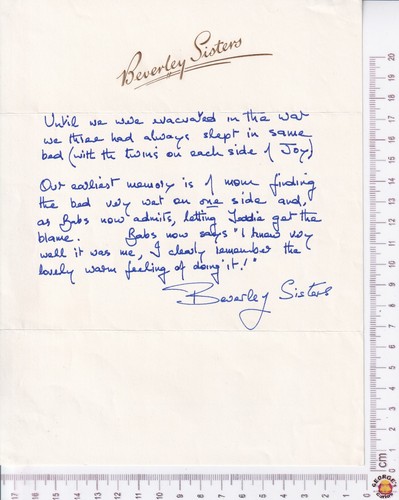 Beverley Sisters
Until we were evacuated in the war
we three had always slept in same
bed (with the twins on each side of Joy)
Our earliest memory is of mum finding
the bed very wet on one side and,
as Babs now admits, letting Teddie get the
blame. Babs now says "I knew very
well it was me, I clearly remember the
lovely warm feeling of doing it!"
Beverley Sisters
20 19 18 17 16 15 14 13 12 11 10 9 8 7 6 5 4 3 2 1 0 cm
17 16 15 14 13 12 11 10 9 8 7 6 5 4 3 2 1 0
GEORGE'S